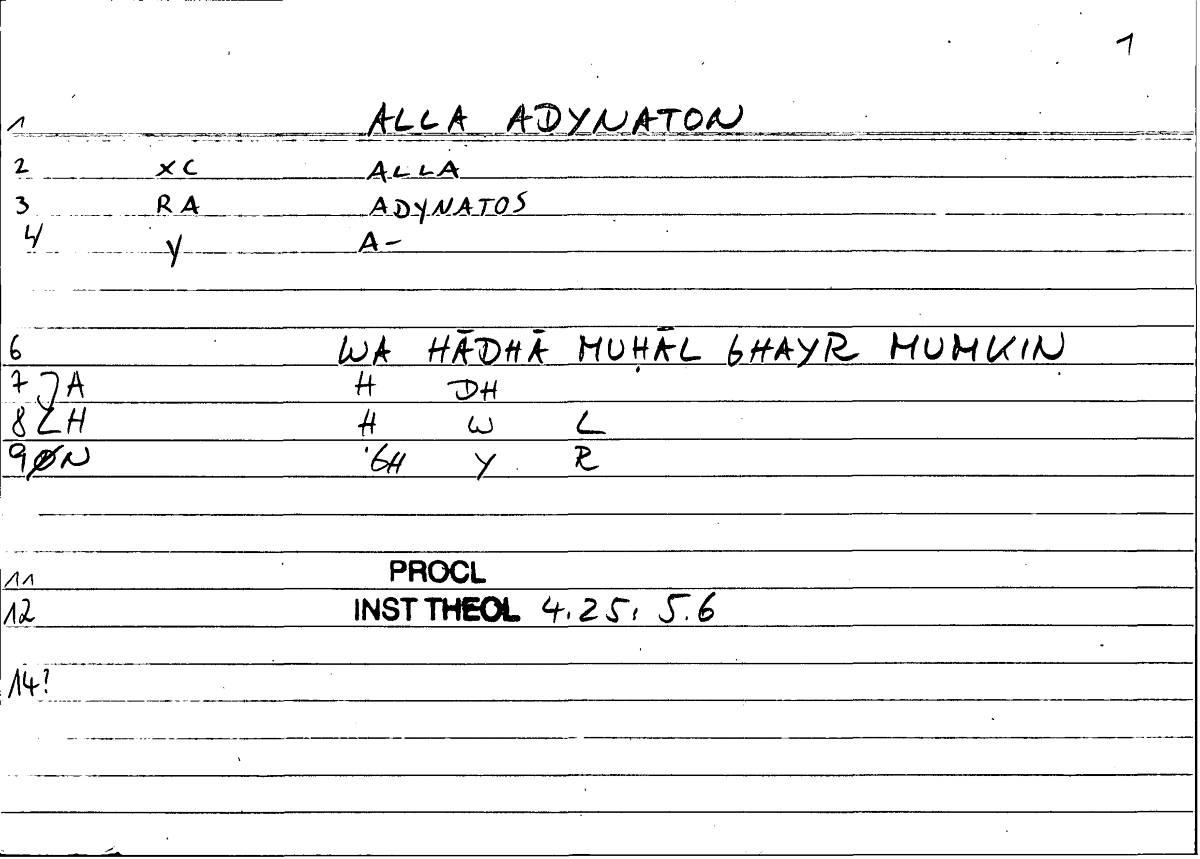 1
1 ALLA ADYNATON
2 XC ALLA
3 RA ADYNATOS
4 y A-
6 WA HĀDHĀ MUḤĀL GHAYR MUMKIN
7 JA H DH
8 ZH H W L
9 ØN GH Y R
11 PROCL
12 INST THEOL 4.25; 5.6
14?